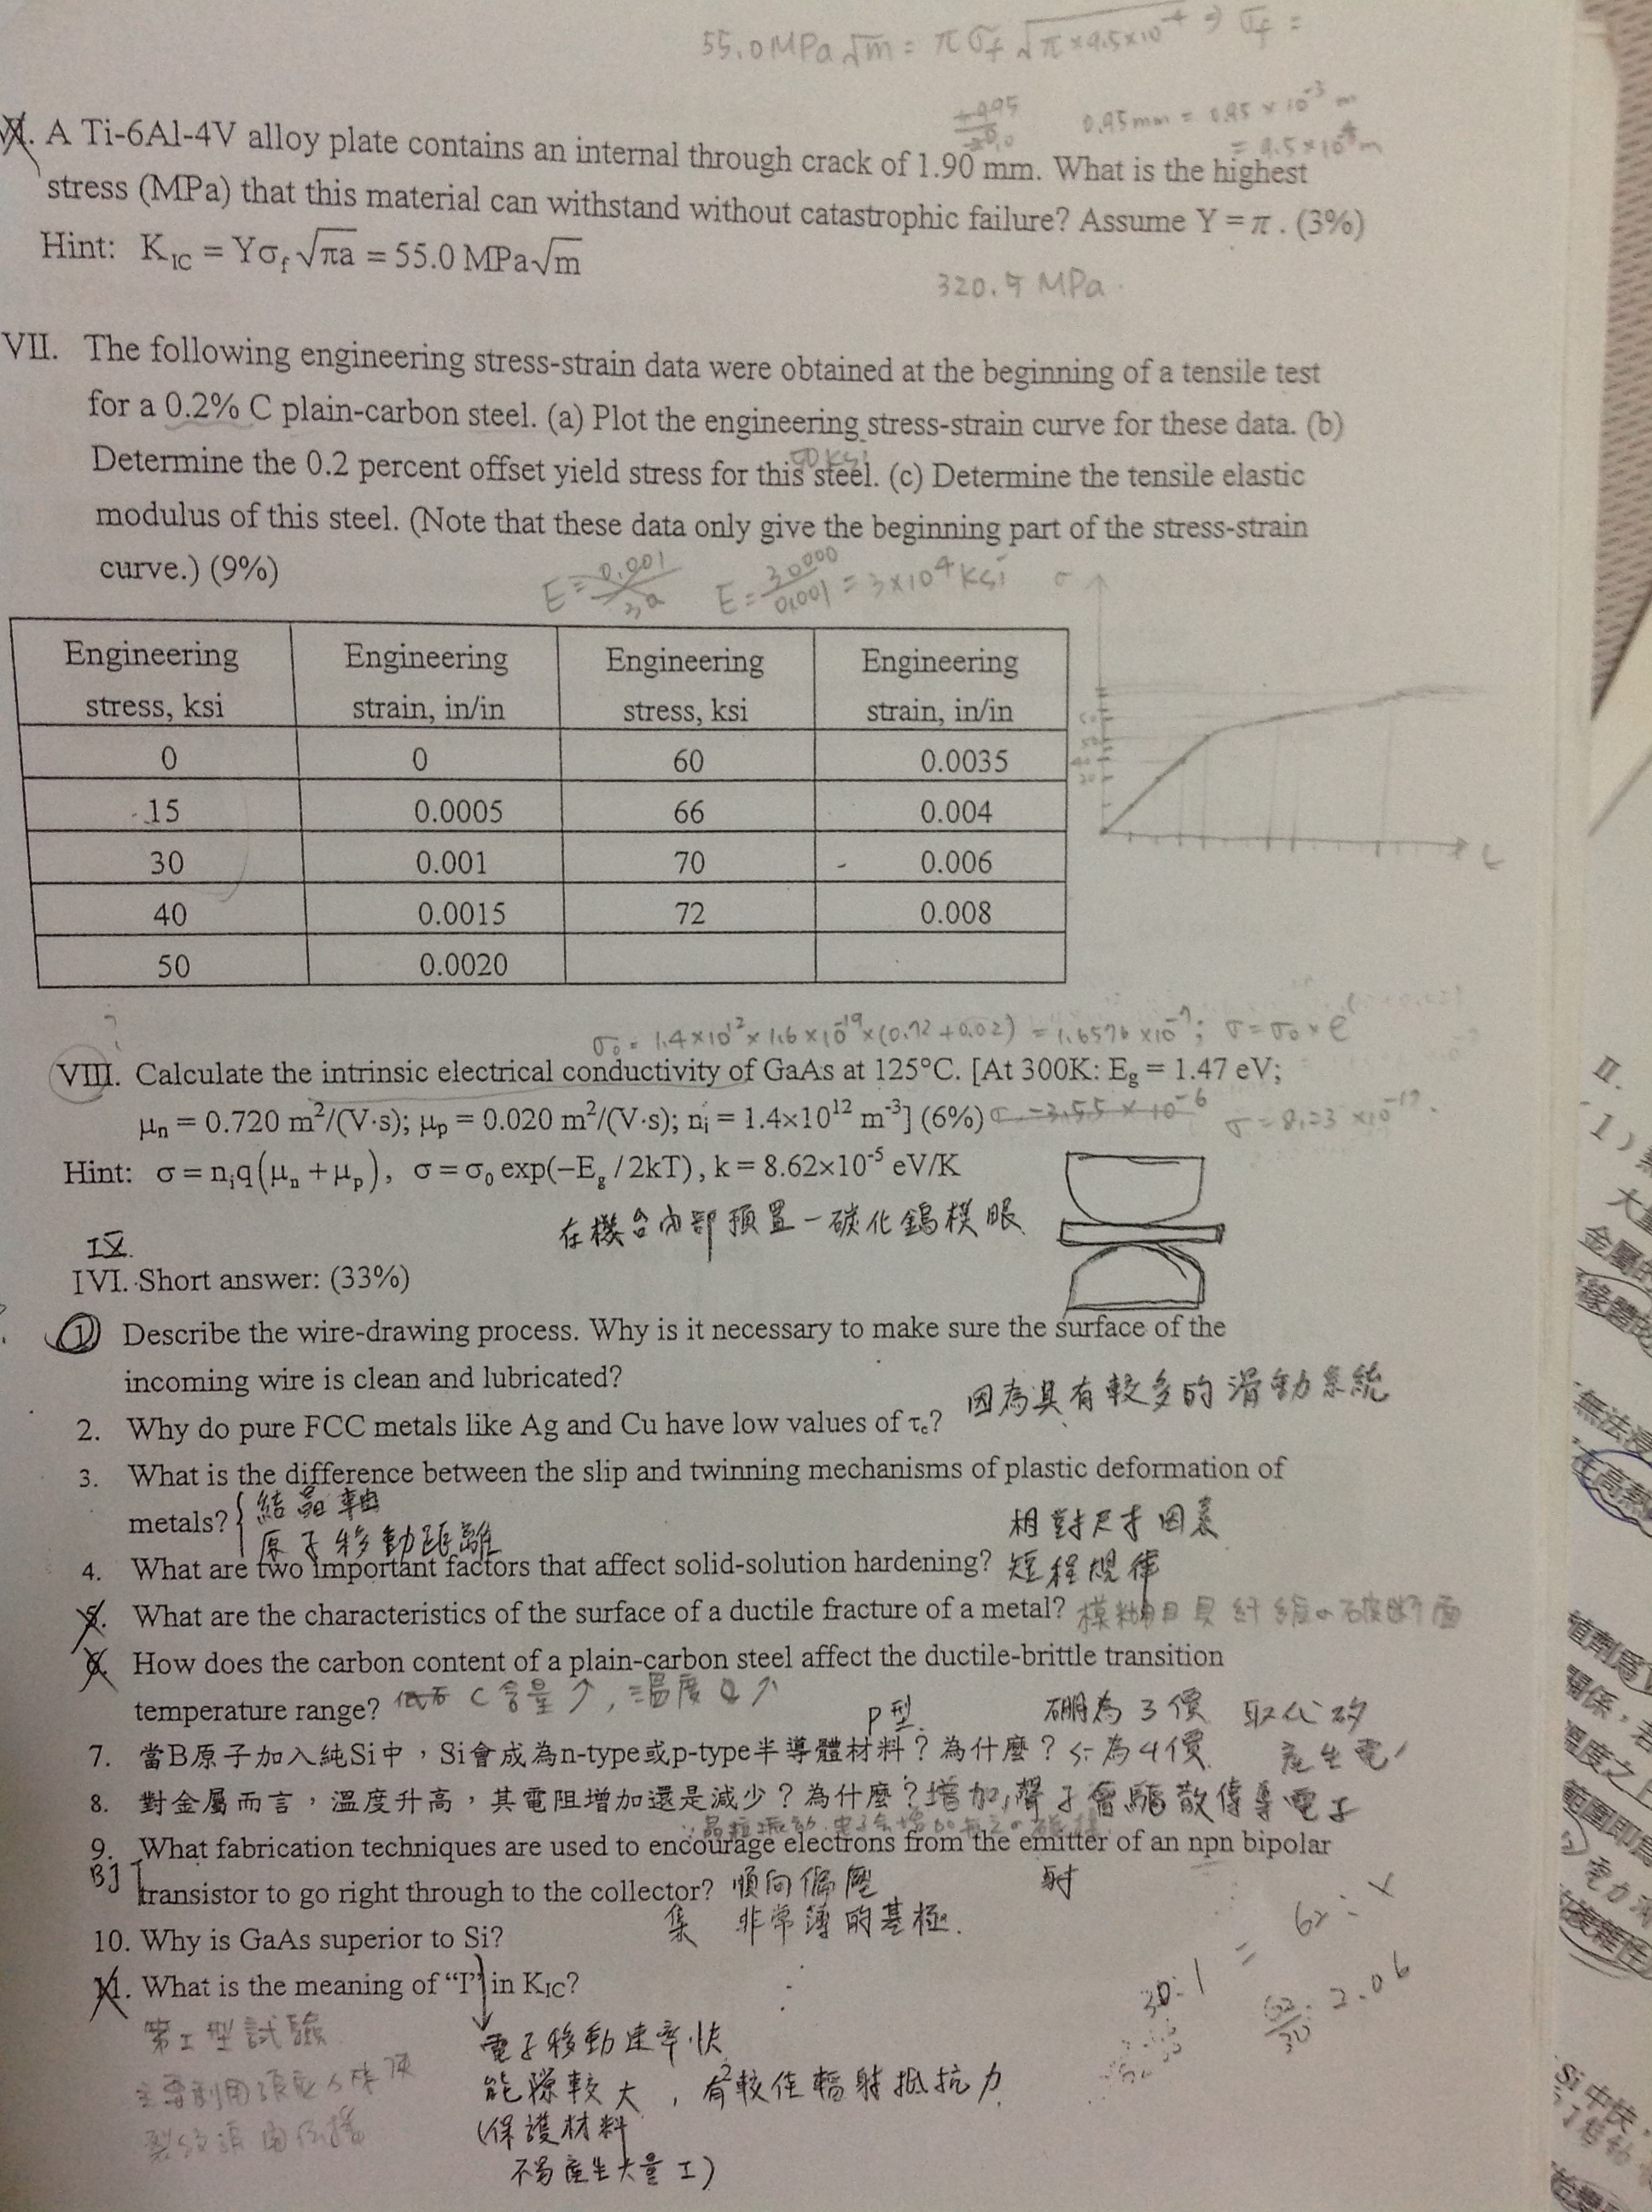 55.0MPa√m = πσf √π×9.5×10⁻⁴ ⇒ σf =
0.95mm = 0.95 × 10⁻³ m
= 9.5×10⁻⁴ m
VI. A Ti-6Al-4V alloy plate contains an internal through crack of 1.90 mm. What is the highest
stress (MPa) that this material can withstand without catastrophic failure? Assume Y = π . (3%)
Hint: K_IC = Yσf √πa = 55.0 MPa√m
320.5 MPa
VII. The following engineering stress-strain data were obtained at the beginning of a tensile test
for a 0.2% C plain-carbon steel. (a) Plot the engineering stress-strain curve for these data. (b)
Determine the 0.2 percent offset yield stress for this steel. (c) Determine the tensile elastic
modulus of this steel. (Note that these data only give the beginning part of the stress-strain
curve.) (9%)
E = 30000/0.001 = 3×10⁴ ksi
σ
Engineering stress, ksi Engineering strain, in/in Engineering stress, ksi Engineering strain, in/in
0 0 60 0.0035
15 0.0005 66 0.004
30 0.001 70 0.006
40 0.0015 72 0.008
50 0.0020
σ₀ = 1.4×10¹² × 1.6×10⁻¹⁹ × (0.72+0.02) = 1.6576 ×10⁻⁷; σ = σ₀ × e
VIII. Calculate the intrinsic electrical conductivity of GaAs at 125°C. [At 300K: Eg = 1.47 eV;
μn = 0.720 m²/(V·s); μp = 0.020 m²/(V·s); ni = 1.4×10¹² m⁻³] (6%) σ = 3.55 × 10⁻⁶ σ = 8.23 ×10⁻¹⁹
Hint: σ = niq(μn + μp), σ = σ0 exp(−Eg / 2kT), k = 8.62×10⁻⁵ eV/K
在機台內部預置一碳化鎢模眼
IX.
IVI. Short answer: (33%)
1. Describe the wire-drawing process. Why is it necessary to make sure the surface of the
incoming wire is clean and lubricated?
因為具有較多的滑動系統
2. Why do pure FCC metals like Ag and Cu have low values of τc?
3. What is the difference between the slip and twinning mechanisms of plastic deformation of
metals? { 結晶軸
原子移動距離
相對尺寸因素
4. What are two important factors that affect solid-solution hardening? 短程規律
5. What are the characteristics of the surface of a ductile fracture of a metal?
6. How does the carbon content of a plain-carbon steel affect the ductile-brittle transition
temperature range? C含量↑, 溫度↑
P型. 硼為3價 取代矽
7. 當B原子加入純Si中，Si會成為n-type或p-type半導體材料？為什麼？ Si為4價 產生電
8. 對金屬而言，溫度升高，其電阻增加還是減少？為什麼？增加, 聲子會驅散傳導電子
9. What fabrication techniques are used to encourage electrons from the emitter of an npn bipolar
BJT
transistor to go right through to the collector? 順向偏壓 射
集 非常薄的基極.
10. Why is GaAs superior to Si?
11. What is the meaning of “I” in KIC?
第I型試驗
電子移動速率快
能隙較大，有較佳輻射抵抗力
(保護材料
不易產生大量I)
30.1 =
2.06
II.
1)
Si中